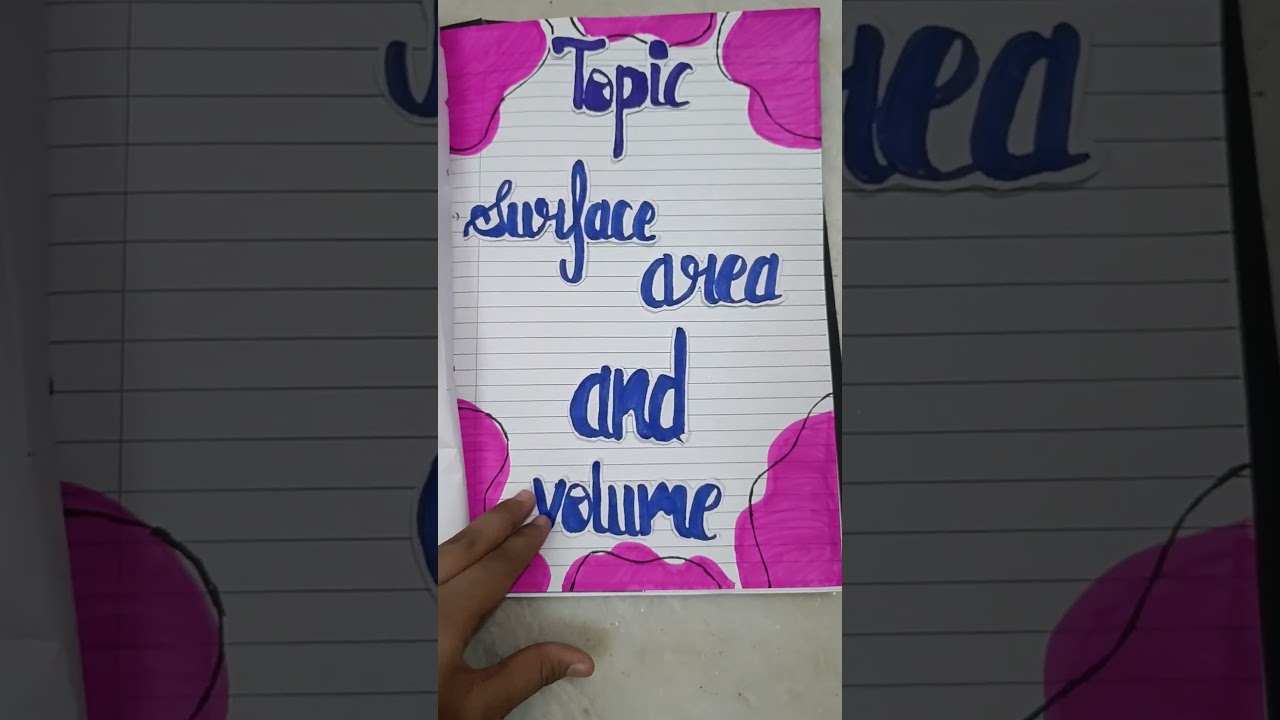 Topic
Surface
area
and
volume